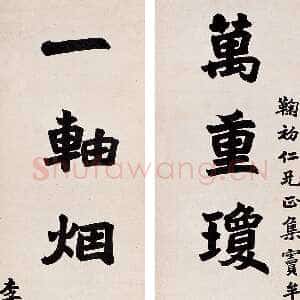 鞠初仁兄正集竇年
萬重瓊
一軸烟
李
Shufawang.CN